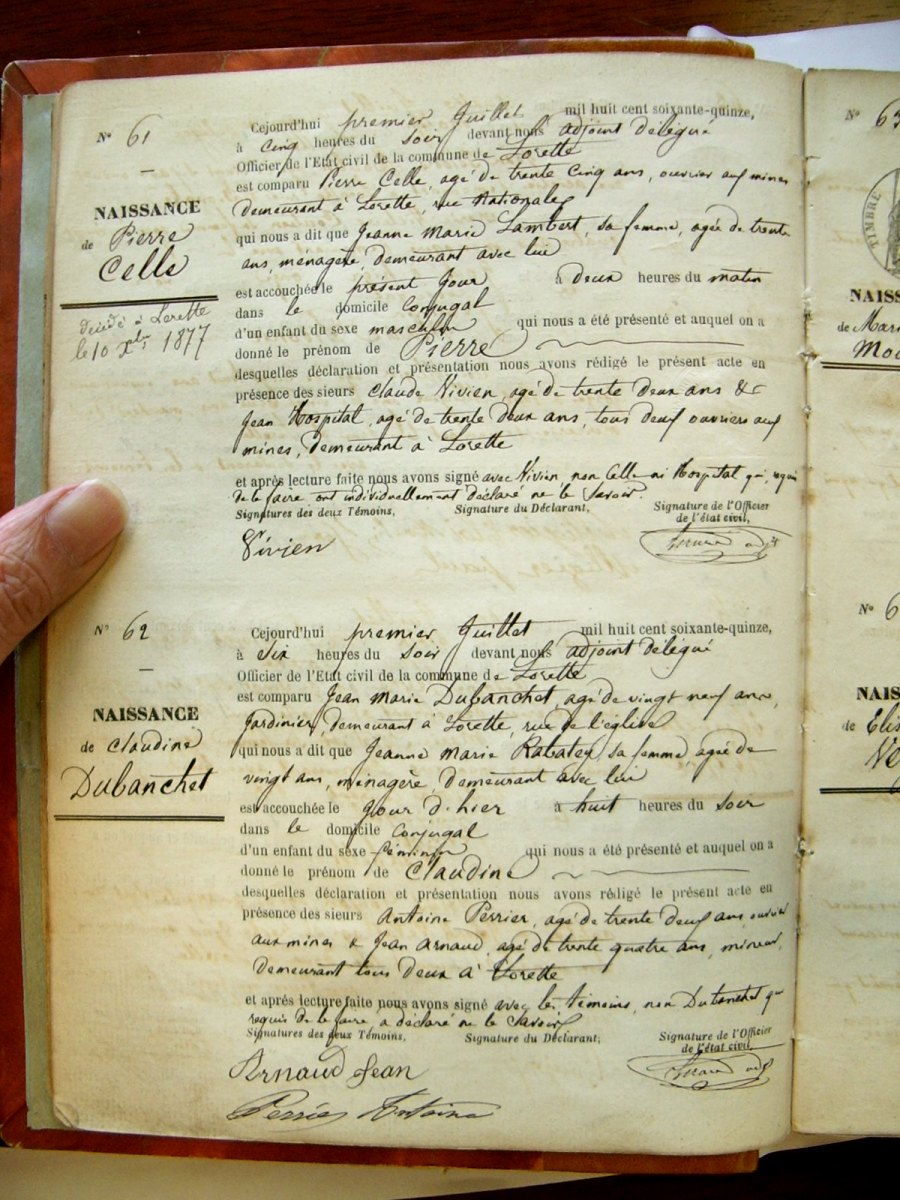 N° 61
NAISSANCE
de Pierre
Celle
décédé à Lorette
le 10 Xbre 1877
Cejourd'hui premier Juillet mil huit cent soixante-quinze,
à cinq heures du soir devant nous adjoint délégué
Officier de l'Etat civil de la commune de Lorette
est comparu Pierre Celle, agé de trente cinq ans, ouvrier aux mines
demeurant à Lorette, rue Nationale
qui nous a dit que Jeanne Marie Lambert, sa femme, agée de trente
ans, ménagère, demeurant avec lui
est accouchée le présent jour à deux heures du matin
dans le domicile conjugal
d'un enfant du sexe masculin qui nous a été présenté et auquel on a
donné le prénom de Pierre
desquelles déclaration et présentation nous avons rédigé le présent acte en
présence des sieurs Claude Vivien, agé de trente deux ans &
Jean Hospital, agé de trente deux ans, tous deux ouvriers aux
mines, demeurant à Lorette
et après lecture faite nous avons signé avec Vivien, non Celle ni Hospital qui, requis
de le faire ont individuellement déclaré ne le savoir
Signatures des deux Témoins, Signature du Déclarant, Signature de l'Officier
de l'état civil,
Vivien
N° 62
NAISSANCE
de Claudine
Dubanchet
Cejourd'hui premier Juillet mil huit cent soixante-quinze,
à six heures du soir devant nous adjoint délégué
Officier de l'Etat civil de la commune de Lorette
est comparu Jean Marie Dubanchet, agé de vingt neuf ans,
jardinier, demeurant à Lorette, rue de l'église
qui nous a dit que Jeanne Marie Rabatey, sa femme, agée de
vingt ans, ménagère, demeurant avec lui
est accouchée le jour d'hier à huit heures du soir
dans le domicile conjugal
d'un enfant du sexe féminin qui nous a été présenté et auquel on a
donné le prénom de Claudine
desquelles déclaration et présentation nous avons rédigé le présent acte en
présence des sieurs Antoine Perrier, agé de trente deux ans ouvrier
aux mines & Jean Arnaud, agé de trente quatre ans, mineur,
demeurant tous deux à Lorette
et après lecture faite nous avons signé avec les témoins, non Dubanchet qui
requis de le faire a déclaré ne le savoir
Signatures des deux Témoins, Signature du Déclarant, Signature de l'Officier
de l'état civil,
Arnaud Jean
Perrier Antoine
N° 63
TIMBRE
NAISS
de Mari
N° 6
NAISS
de Elis
Ve